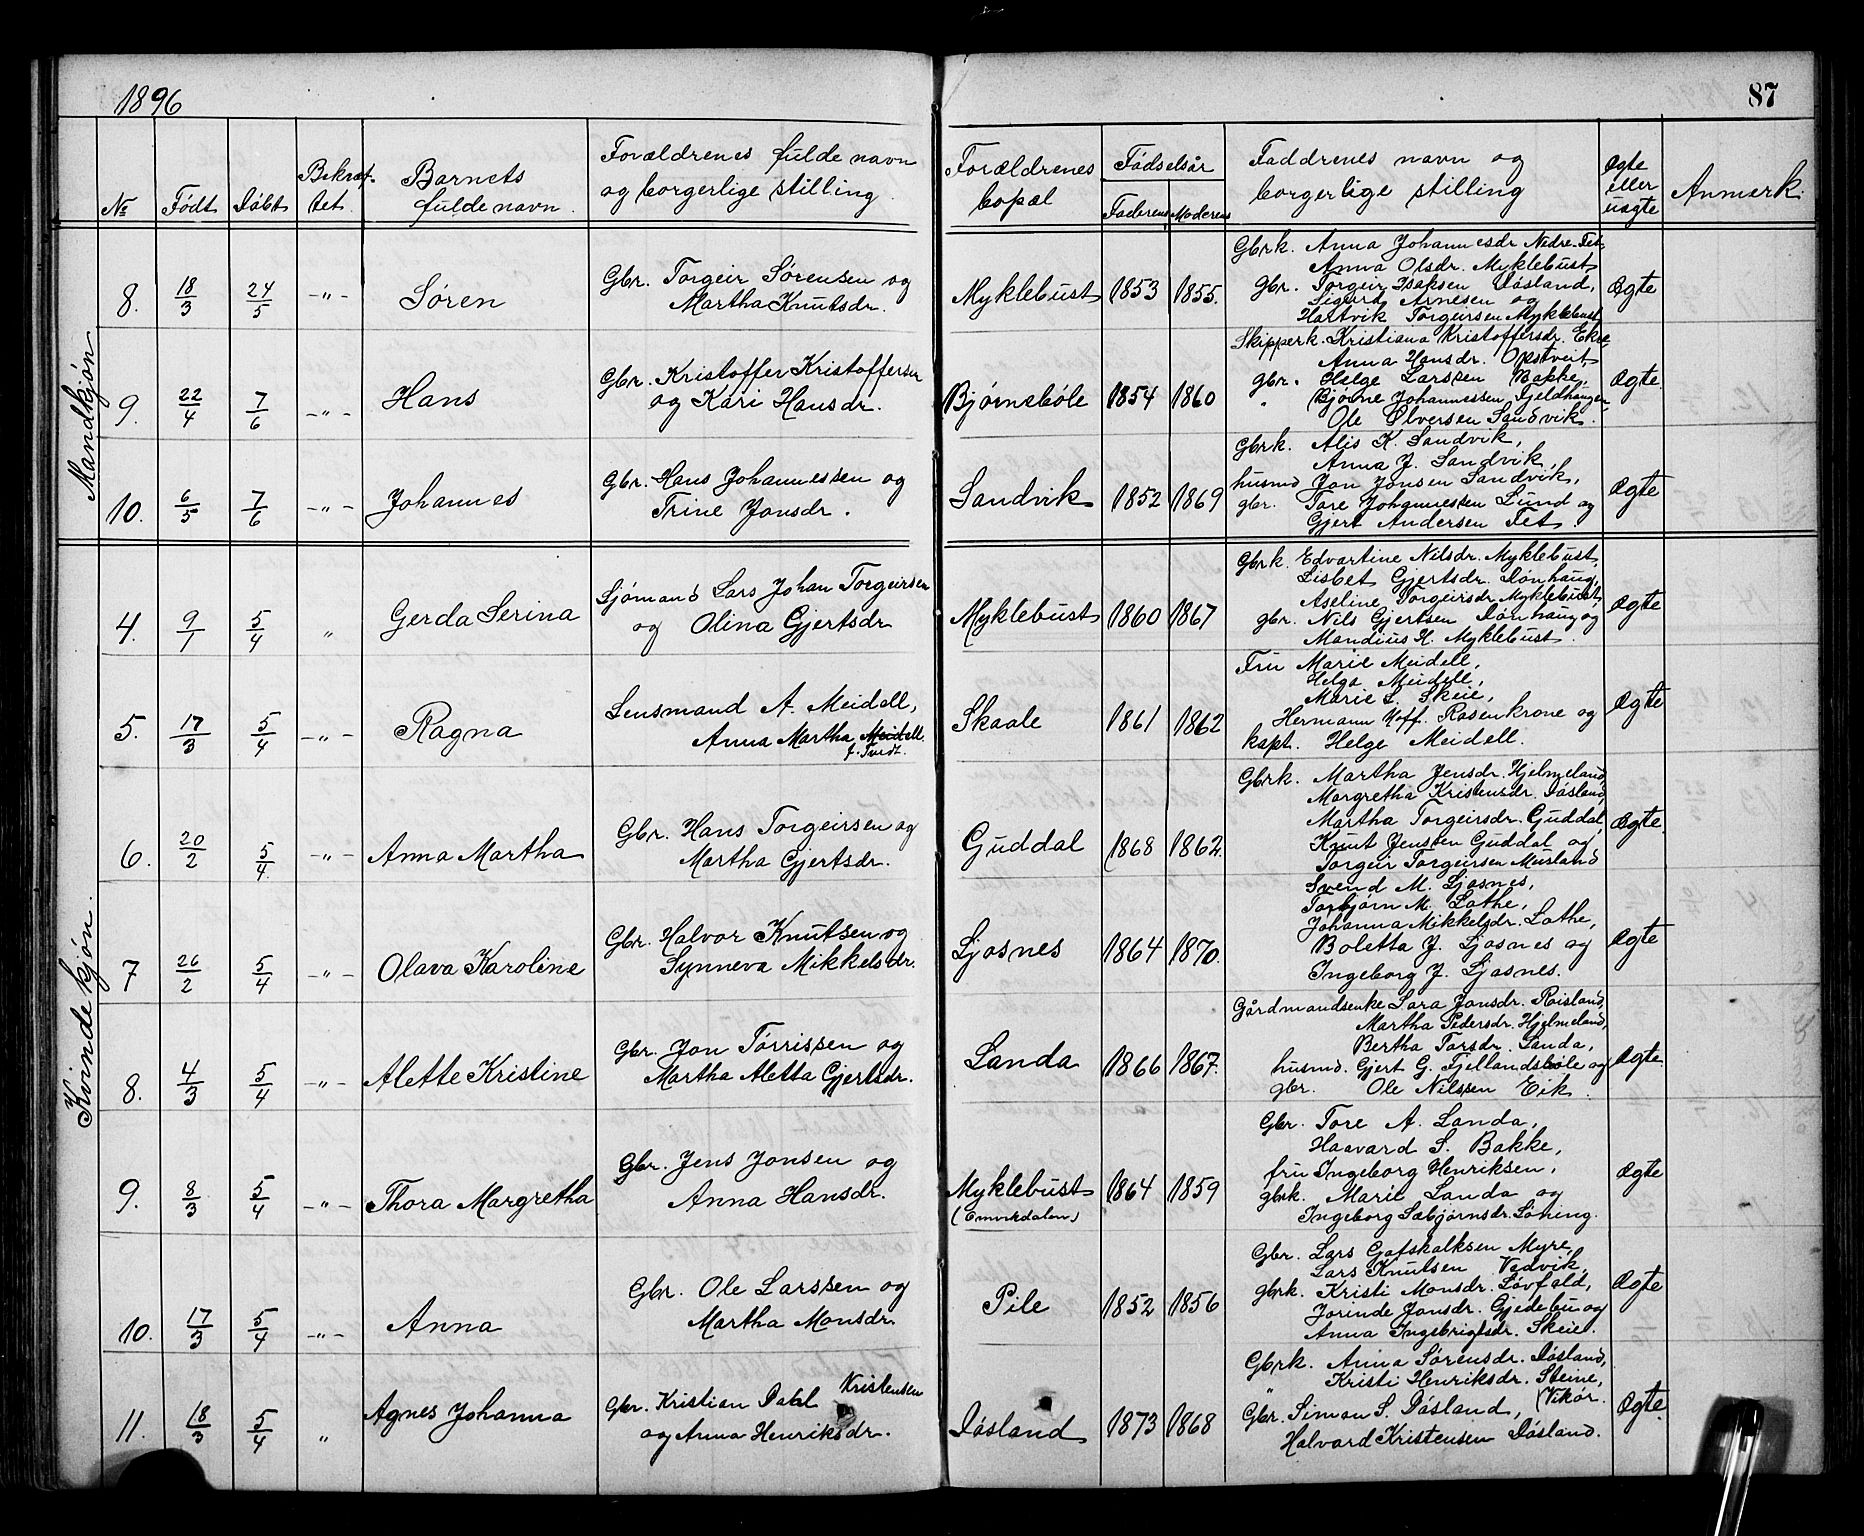 1896
87
№ Født Døbt Bekræftet Barnets fulde navn Forældrenes fulde navn og borgerlige stilling Forældrenes bopæl Fødselsår Faderens Moderens Faddrenes navn og borgerlige stilling Ægte eller uægte Anmærk.
Mandkjøn
8. 18/3 24/5 -"- Søren Gbr. Torgeir Sørensen og Martha Knutsdr. Myklebust 1853 1855. Ægte
Gbrk. Anna Johannesdr Nedre-Fet,
Anna Olsdr. Myklebust
gbr. Torgeir Isaksen Døsland,
Sigurd Arnesen og
Hartvik Torgeirsen Myklebust
9. 22/4 7/6 -"- Hans Gbr. Kristoffer Kristoffersen og Kari Hansdr. Bjørnebøle 1854 1860 Ægte
Skipperk. Kristiana Kristoffersdr. Ekre
Anna Hansdr. Opstveit,
gbr. Helge Larssen Bakke,
" Bjørne Johannessen Fjeldhaugen,
Ole Ølversen Sandvik.
10. 6/5 7/6 -"- Johannes Gbr. Hans Johannessen og Trine Jonsdr. Sandvik 1852 1869 Ægte
Gbrk. Alis K. Sandvik,
Anna J. Sandvik,
husmd Jon Jonsen Sandvik,
gbr. Tore Johannessen Lund og
Gjert Andersen Fet.
Kvindekjøn.
4. 9/1 5/4 " Gerda Serina Sjømand Lars Johan Torgeirsen og Olina Gjertsdr Myklebust 1860 1867 Ægte
Gbrk. Edvartine Nilsdr. Myklebust,
Lisbet Gjertsdr. Dønhaug,
Aseline Torgeirsdr. Myklebust,
gbr. Nils Gjertsen Dønhaug og
Mandius H. Myklebust.
5. 17/3 5/4 -"- Ragna Lensmand A. Meidell, Anna Martha Meidell. f. Tvedt. Skaale 1861 1862 Ægte
Fru Marie Meidell,
Helga Meidell,
Marie L. Skeie,
Hermann Hoff. Rosenkrone og
kapt. Helge Meidell.
6. 20/2 5/4. -"- Anna Martha Gbr. Hans Torgeirsen og Martha Gjertsdr. Guddal 1868 1862. Ægte.
Gbrk. Martha Jensdr. Hjelmeland,
Margretha Kristensdr. Døsland,
Martha Torgeirsdr. Guddal,
Knut Jensen Guddal og
Torgeir Torgeirsen Meisland
7 26/2 5/4 -"- Olava Karoline Gbr. Halvor Knutsen og Synneva Mikkelsdr. Ljosnes 1864 1870. Ægte
Svend M. Ljosnes,
Torbjørn M. Lothe,
Johanna Mikkelsdr. Lothe,
Boletta J. Ljosnes og
Ingeborg J. Ljosnes.
8. 4/3 5/4 -"- Alette Kristine Gbr. Jon Torrissen og Martha Aletta Gjertsdr. Landa 1866 1867. Ægte.
Gårdmandsenke Sara Jonsdr. Røisland,
Martha Pedersdr. Hjelmeland,
Bertha Torsdr. Landa,
husmd. Gjert G. Fjellandsbøle og
gbr. Ole Nilssen Eik.
9. 8/3 5/4 -"- Thora Margretha Gbr. Jens Jonsen og Anna Hansdr. Myklebust (Omvikdalen) 1864 1859 Ægte
Gbr. Tore A. Landa,
Haavard S. Bakke,
fru Ingeborg Henriksen,
gbrk. Marie Landa og
Ingeborg Sæbjørnsdr. Løning.
10. 17/3 5/4 -"- Anna Gbr. Ole Larssen og Martha Monsdr. Pile 1852 1856 Ægte
Gbr. Lars Gotskalksen Myre,
Lars Knutsen Vedvik,
gbrk. Kristi Monsdr. Løvfald,
Jorinde Jonsdr. Gjedebu og
Anna Ingebrigtsdr. Skeie.
11. 18/3 5/4 " Agnes Johanna Gbr. Kristian Dahl Kristensen og Anna Henriksdr. Døsland 1873 1868 Ægte.
Gbrk. Anna Sørensdr. Døsland,
" Kristi Henriksdr. Steine, (Vikør.
Gbr. Simon S. Døsland,
Halvard Kristensen Døsland.